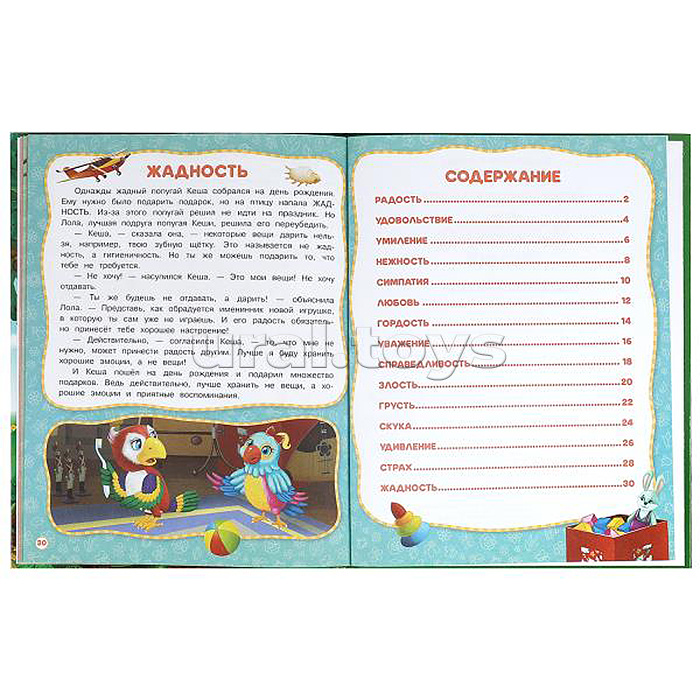 ЖАДНОСТЬ
Однажды жадный попугай Кеша собрался на день рождения.
Ему нужно было подарить подарок, но на птицу напала ЖАД-
НОСТЬ. Из-за этого попугай решил не идти на праздник. Но
Лола, лучшая подруга попугая Кеши, решила его переубедить.
— Кеша, — сказала она, — некоторые вещи дарить нель-
зя, например, твою зубную щётку. Это называется не жад-
ность, а гигиеничность. Но ты же можешь подарить то, что
тебе не требуется.
— Не хочу! — насупился Кеша. — Это мои вещи! Не хочу
отдавать.
— Ты же будешь не отдавать, а дарить! — объяснила
Лола. — Представь, как обрадуется именинник новой игрушке,
в которую ты сам уже не играешь. И его радость обязатель-
но принесёт тебе хорошее настроение!
— Действительно, — согласился Кеша, — то, что мне не
нужно, может принести радость другим. Лучше я буду хранить
хорошие эмоции, а не вещи!
И Кеша пошёл на день рождения и подарил множество
подарков. Ведь действительно, лучше хранить не вещи, а хо-
рошие эмоции и приятные воспоминания.
30
СОДЕРЖАНИЕ
РАДОСТЬ 2
УДОВОЛЬСТВИЕ 4
УМИЛЕНИЕ 6
НЕЖНОСТЬ 8
СИМПАТИЯ 10
ЛЮБОВЬ 12
ГОРДОСТЬ 14
УВАЖЕНИЕ 16
СПРАВЕДЛИВОСТЬ 18
ЗЛОСТЬ 20
ГРУСТЬ 22
СКУКА 24
УДИВЛЕНИЕ 26
СТРАХ 28
ЖАДНОСТЬ 30
ural.toys